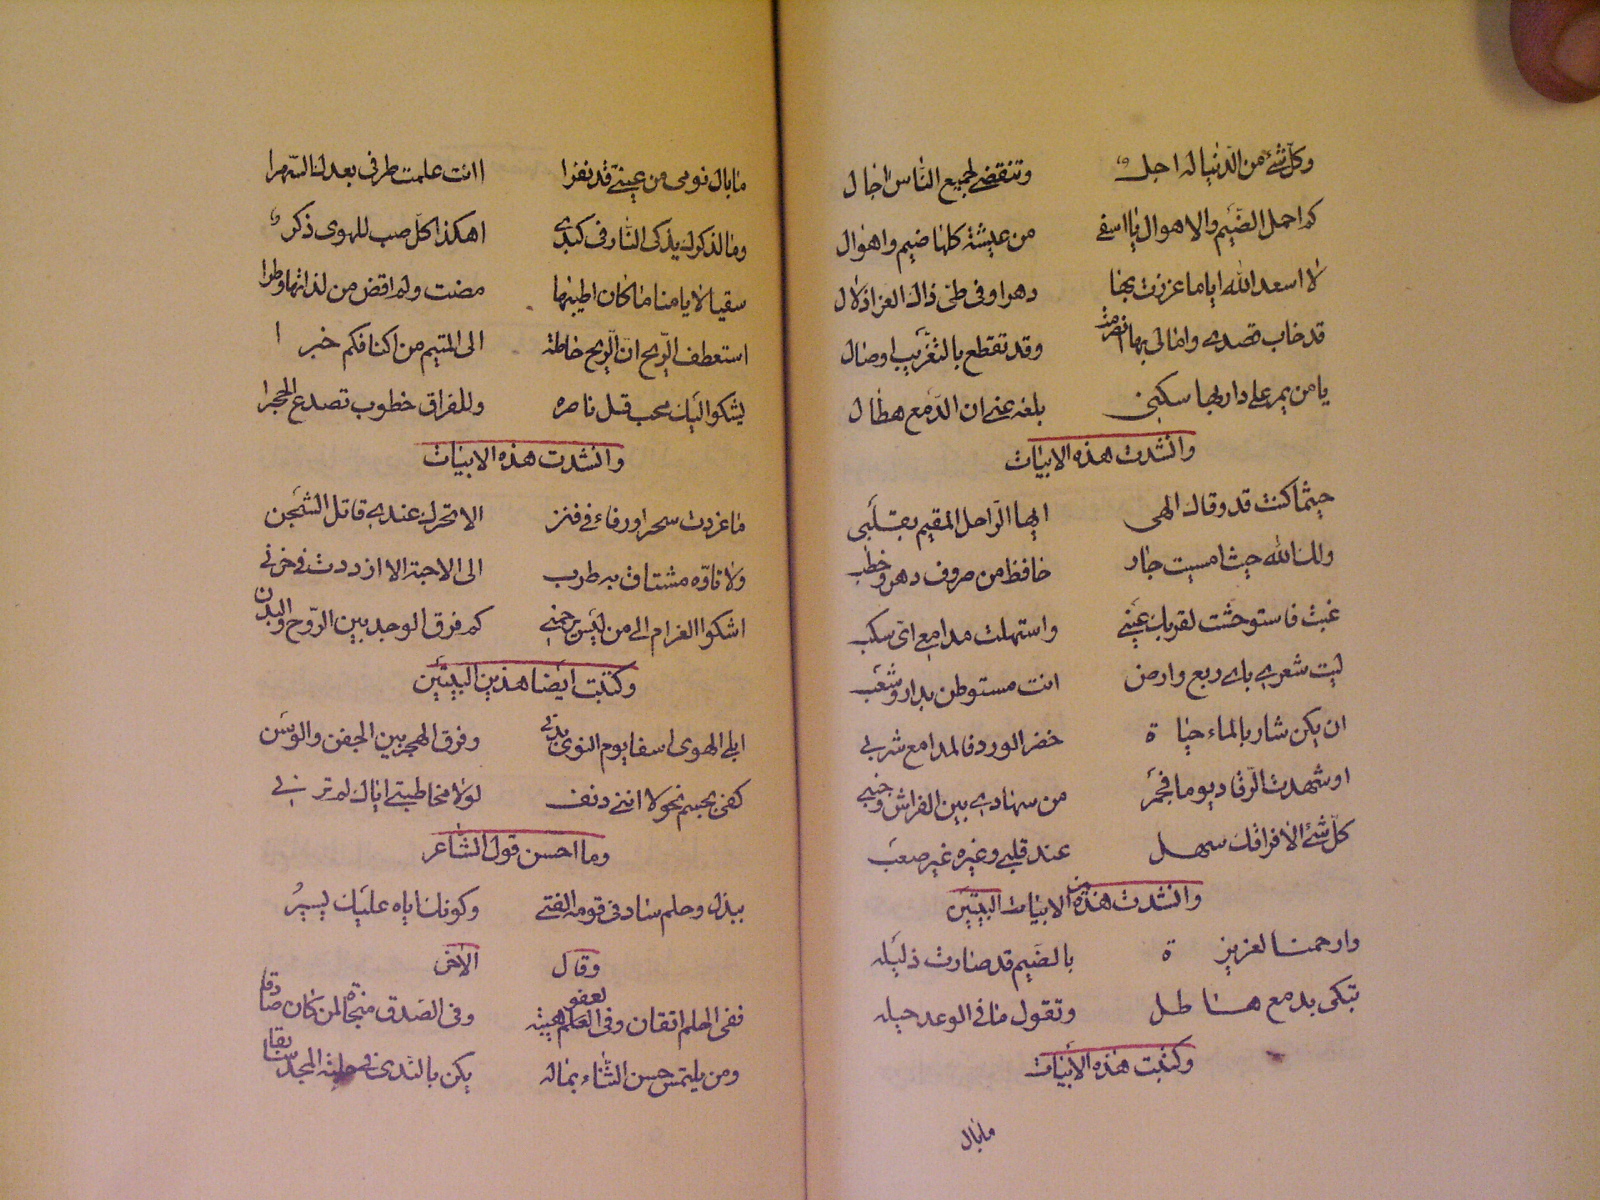 وكلّ شئ من الدّنيا له اجل وتنقضى لجميع النّاس اجال
كم احمل الضّيم والاهوال يا اسفى من عيشة كلها ضيم واهوال
لا اسعد الله اياما عززت بها دهرا وفى طى ذاك العز اذلال
قد خاب قصدى وامالى بها انصرمت وقد تقطع بالتغريب اوصال
يا من يمر على دار بها سكنى بلغه عنى ان الدّمع هطال
وانشدت هذه الابيات
حيثما كنت قد وقاك الهى ايها الرّاحل المقيم بقلبى
ولك الله حيث امسيت جار حافظ من صروف دهر وخطب
غبت فاستوحشت لقربك عينى واستهلت مدامعى اى سكب
ليت شعرى باى ربع وارض انت مستوطن بدار وشعب
ان يكن شاربا لماء حياة خضر الورد فالمدامع شربى
او شهدت الرّقاد يوما فجمر من سهادى بين الفراش وجنبى
كلّ شئ الا فراقك سهل عند قلبى وغيره غير صعب
وانشدت من هذه الابيات البيتين
وارحمتا لعزيزة بالضيم قد صارت ذليله
تبكى بدمع هاطل وتقول ما فى الوعد حيله
وكتبت هذه الابيات
ما بال
ما بال نومى من عينىّ قد نفرا اانت علمت طرفى بعدك السّهرا
وما لذكرك يذكى النّار فى كبدى اهكذا كلّ صب للهوى ذكرا
سقيا لايامنا ما كان اطيبها مضت ولم اقض من لذاتها وطرا
استعطف الرّيح انّ الرّيح خاطة الى المتيم من اكنافكم خبرا
يشكوا اليك محب قل ناصره وللفراق خطوب تصدع الحجرا
وانشدت هذه الابيات
ما غردت سحرا ورقاء فى فنن الا تحرك عندى قاتل الشجن
ولا تاوّه مشتاق به طرب الى الاحبة الا ازددت فى حزنى
اشكوا الغرام الى من ليس يرحمنى كم فرق الوجد بين الرّوح والبدن
وكتبت ايضا هذين البيتين
ابلى الهوى اسفا يوم النوى بدنى وفرق الهجر بين الجفن والوسن
كفى بجسم نحولا اننى دنف لولا مخاطبتى اياك لم ترنى
وما احسن قول الشاعر
ببذل وحلم ساد فى قومه الفتى وكونك اياه عليك يسير
وقال الاخر
ففى الحلم اتقان وفى العفو هيبة وفى الصّدق منجاة لمن كان صادقا
ومن يلتمس حسن الثناء بماله يكن بالندى فى حلبة المجد سابقا